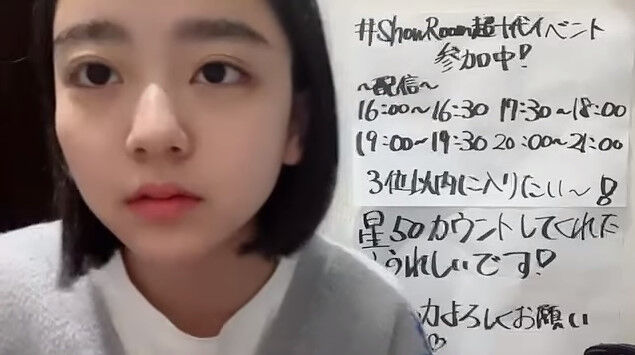 #ShowRoom超十代イベント
参加中!
〜配信〜
16:00〜16:30 17:30〜18:00
19:00〜19:30 20:00〜21:00
3位以内に入りたい〜!
星50カウントしてくれたら
うれしいです!
力よろしくお願い
♡